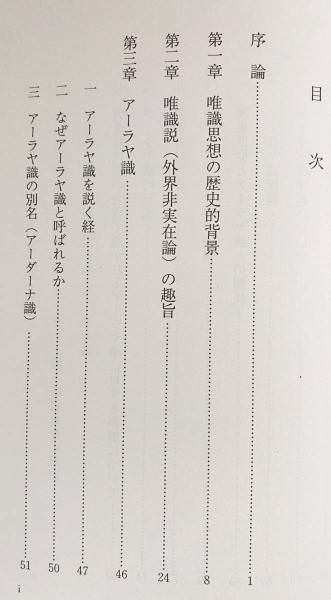 目次
序論……1
第一章 唯識思想の歴史的背景……8
第二章 唯識説（外界非実在論）の趣旨……24
第三章 アーラヤ識……46
一 アーラヤ識を説く経……47
二 なぜアーラヤ識と呼ばれるか……50
三 アーラヤ識の別名（アーダーナ識）……51
i